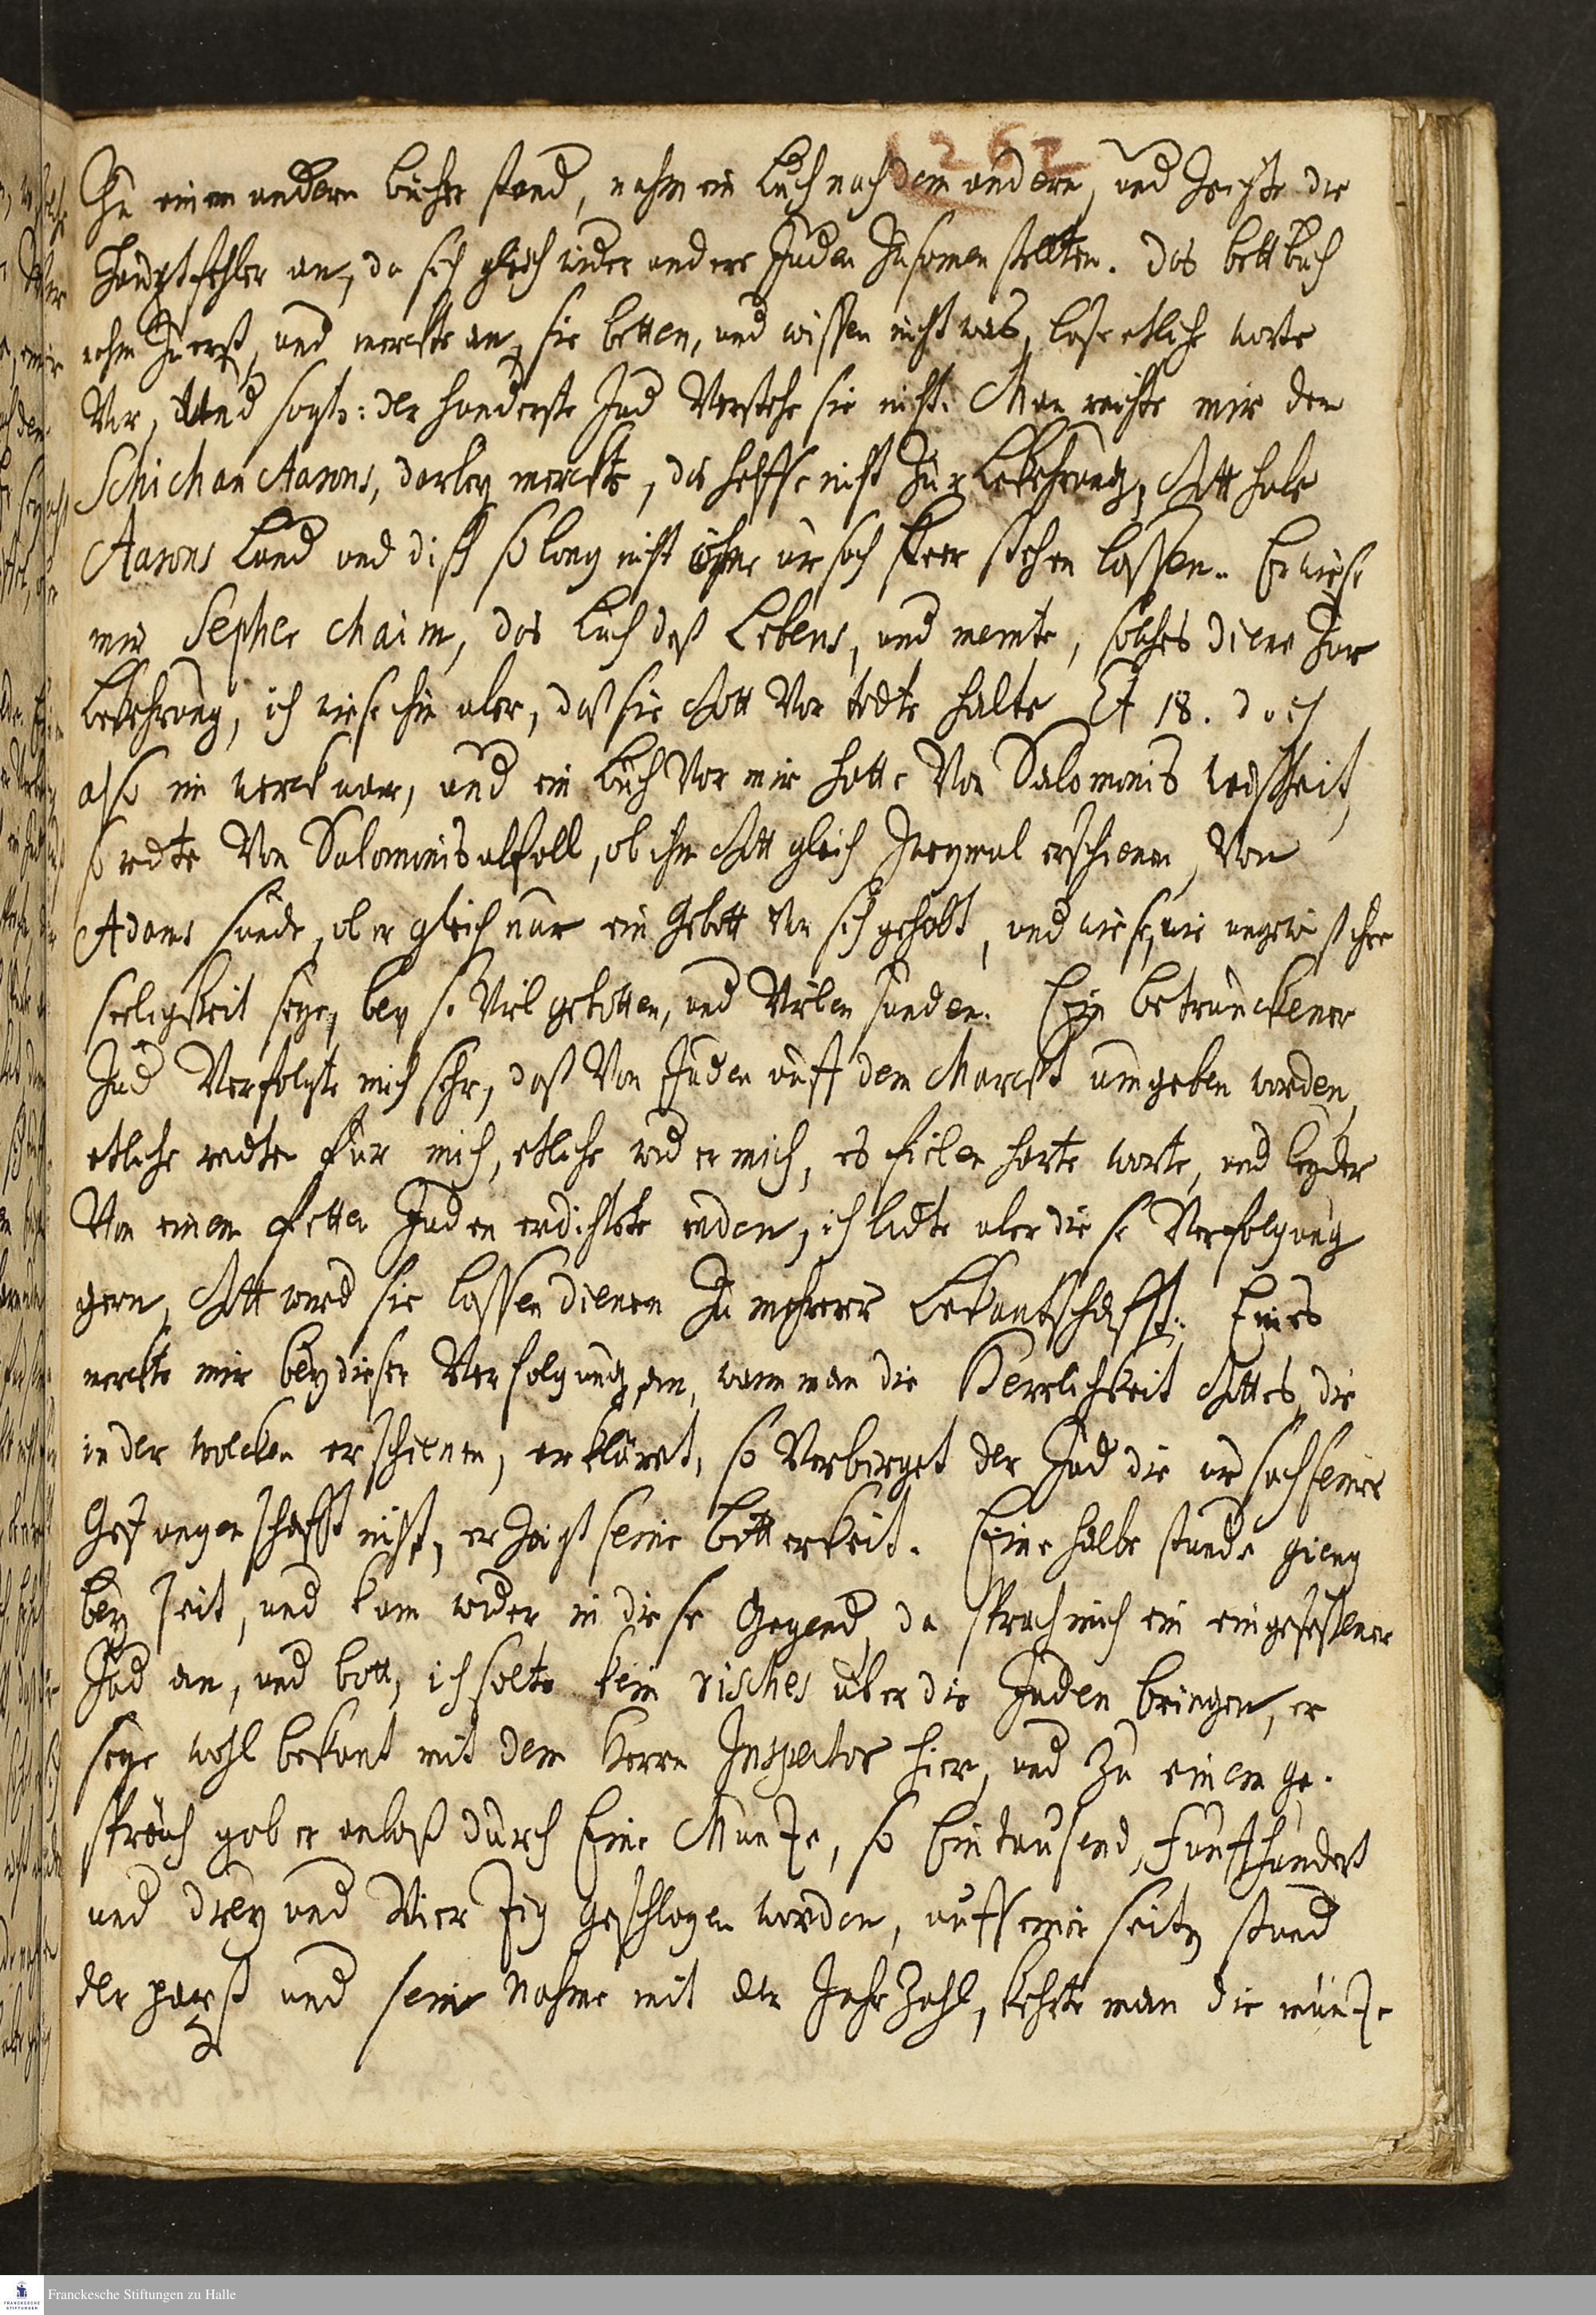 1262
Zu einem andern bücher stand, nahm ein buch nach dem andern, und zeigte die
Hauptfehler an, da sich gleich wider andere Juden zusamen stellten. das bettbuch
nahm zuerst, und merckte an, sie betten, und wissen nicht was, lase etliche worte
Vor, und sagte: der hunderste Jud Verstehe sie nicht. Man reichte mir den
Schichan Aarons, darbey merckte, das helffe nicht zur bekehrung, Gott habe
Aarons Land und disch so lang nicht ohne ursach leer stehen lassen. Er wiese
mir Sepher Chaim, das buch deß Lebens, und meinte, solches diene zur
bekehrung, ich wiese ihn aber, daß sie Gott Vor todte halte Et 18. doch
also im werck war, und ein buch Vor mir hatte Von Salomonis weißheit,
so redte Von Salomonis abfall, ob ihm Gott gleich zweymal erschienen, Von
Adams sünde, ob er gleich nur ein Gebott Vor sich gehabt, und wiese, wie ungewiß ihre
seeligkeit seye, bey so Viel gebotten, und Vielen sünden. Ein betrunckener
Jud Verfolgte mich sehr, daß Von Juden auff dem Marckt umgeben worden,
etliche redten für mich, etliche wider mich, es fielen harte worte, und leyder
Von einem fetten Juden erdichtete reden, ich lidte aber diese Verfolgung
gern, Gott wird sie lassen dienen zu mehrerer bekantschafft. Eines
merckte mir bey dieser Verfolgung an, wann man die Herrlichkeit Gottes, die
in der wolcken erschienen, erkläret, so Verbirget der Jud die ursach seiner
Gefangenschafft nicht, er zeigt seine bitterkeit. Eine halbe stunde gieng
bey seit, und kam wider in diese Gegend, da sprach mich ein eingesessener
Jud an, und bott, ich solte kein risches über die Juden bringen, er
seye wohl bekant mit dem Herrn Inspector hier, und zu einem ge-
spräch gab er anlaß durch Eine Müntze, so Ein tausend, fünffhundert
und drey und Vierzig geschlagen worden, auf einer seiten stund
der papst und sein Nahme mit der Jahrzahl, kehrte man die müntze
Franckesche Stiftungen zu Halle